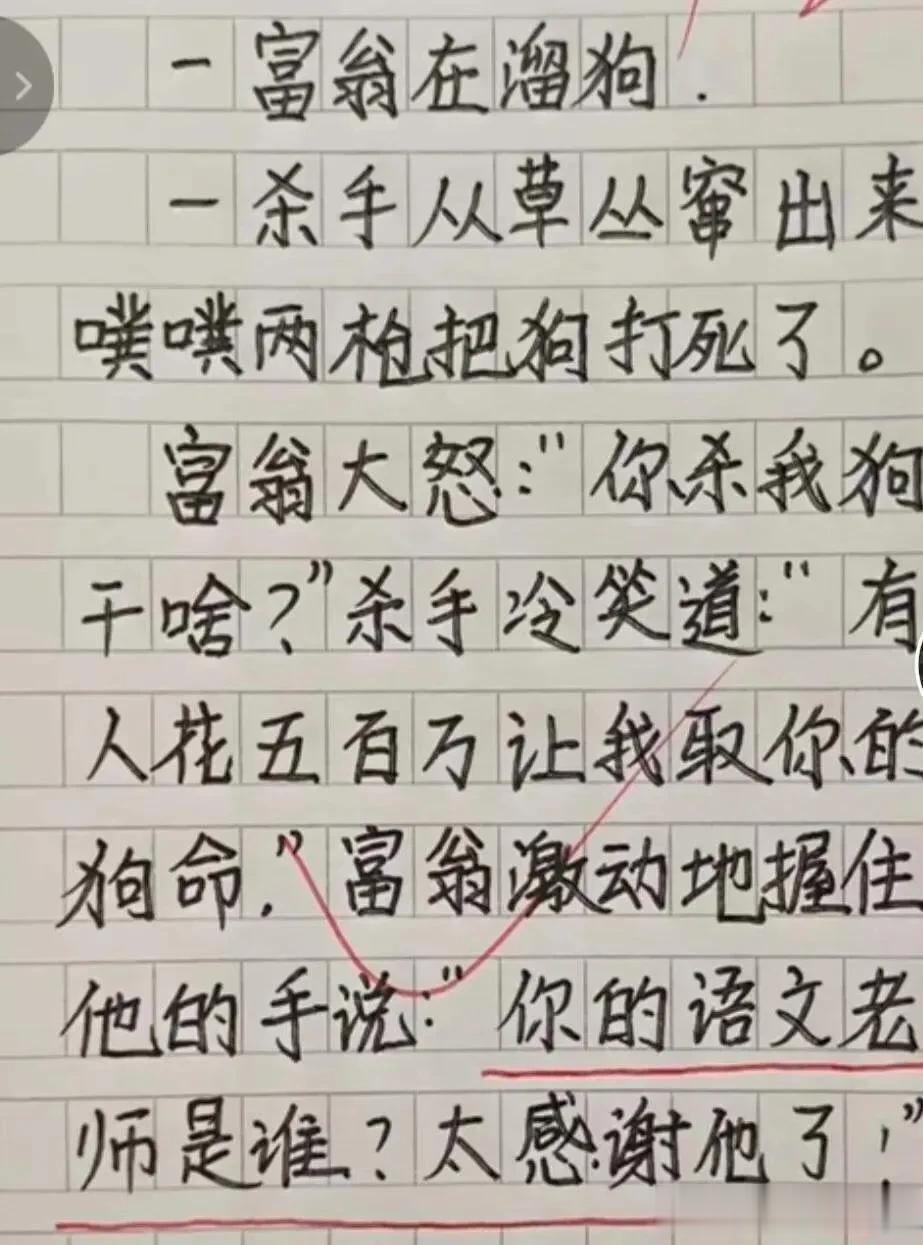 一富翁在溜狗.
一杀手从草丛窜出来
噗噗两枪把狗打死了。
富翁大怒:"你杀我狗
干啥?"杀手冷笑道:"有
人花五百万让我取你的
狗命."富翁激动地握住
他的手说:"你的语文老
师是谁?太感谢他了!"